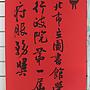 北市立圖書館榮
行政院第一屆
府服務獎